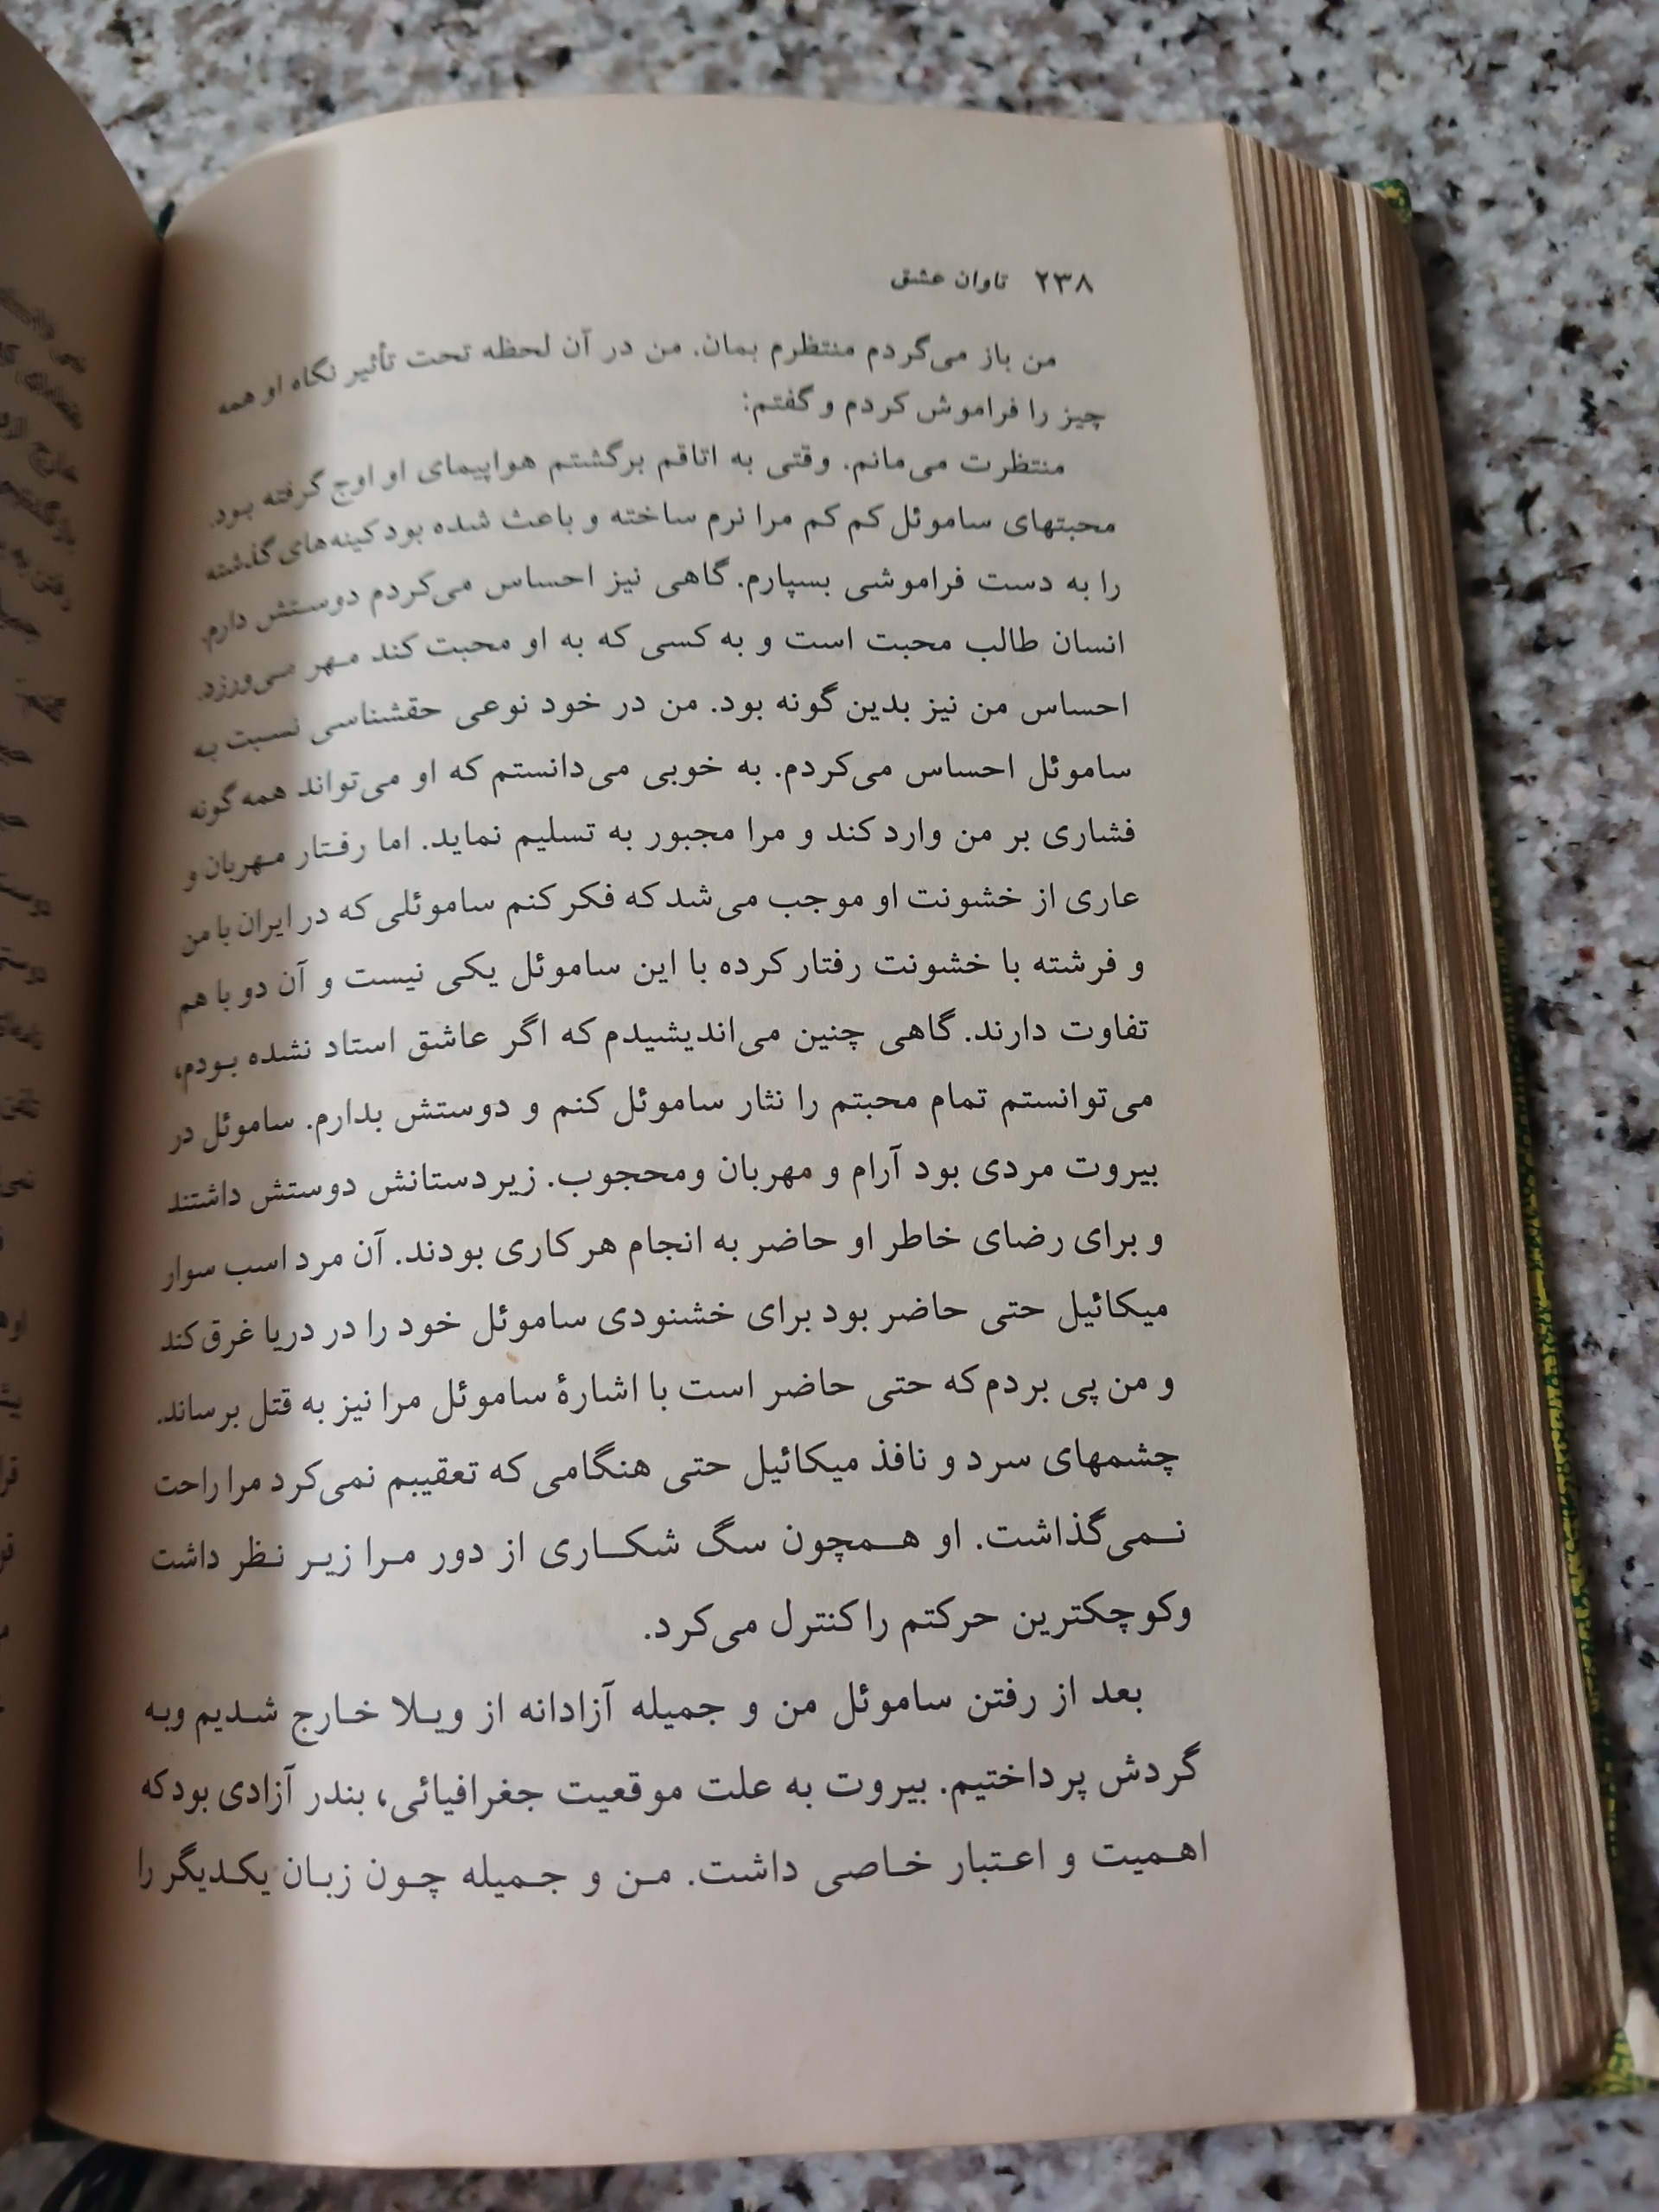 ۲۳۸ تاوان عشق
من باز می‌گردم منتظرم بمان. من در آن لحظه تحت تأثیر نگاه او همه
چیز را فراموش کردم و گفتم:
منتظرت می‌مانم. وقتی به اتاقم برگشتم هواپیمای او اوج گرفته بود.
محبتهای ساموئل کم کم مرا نرم ساخته و باعث شده بود کینه‌های گذشته
را به دست فراموشی بسپارم. گاهی نیز احساس می‌کردم دوستش دارم.
انسان طالب محبت است و به کسی که به او محبت کند مهر می‌ورزد.
احساس من نیز بدین گونه بود. من در خود نوعی حقشناسی نسبت به
ساموئل احساس می‌کردم. به خوبی می‌دانستم که او می‌تواند همه گونه
فشاری بر من وارد کند و مرا مجبور به تسلیم نماید. اما رفتار مهربان و
عاری از خشونت او موجب می‌شد که فکر کنم ساموئلی که در ایران با من
و فرشته با خشونت رفتار کرده با این ساموئل یکی نیست و آن دو با هم
تفاوت دارند. گاهی چنین می‌اندیشیدم که اگر عاشق استاد نشده بودم،
می‌توانستم تمام محبتم را نثار ساموئل کنم و دوستش بدارم. ساموئل در
بیروت مردی بود آرام و مهربان ومحجوب. زیردستانش دوستش داشتند
و برای رضای خاطر او حاضر به انجام هر کاری بودند. آن مرد اسب سوار
میکائیل حتی حاضر بود برای خشنودی ساموئل خود را در دریا غرق کند
و من پی بردم که حتی حاضر است با اشارهٔ ساموئل مرا نیز به قتل برساند.
چشمهای سرد و نافذ میکائیل حتی هنگامی که تعقیبم نمی‌کرد مرا راحت
نمی‌گذاشت. او همچون سگ شکاری از دور مرا زیر نظر داشت
وکوچکترین حرکتم را کنترل می‌کرد.
بعد از رفتن ساموئل من و جمیله آزادانه از ویلا خارج شدیم وبه
گردش پرداختیم. بیروت به علت موقعیت جغرافیائی، بندر آزادی بود که
اهمیت و اعتبار خاصی داشت. من و جمیله چون زبان یکدیگر را